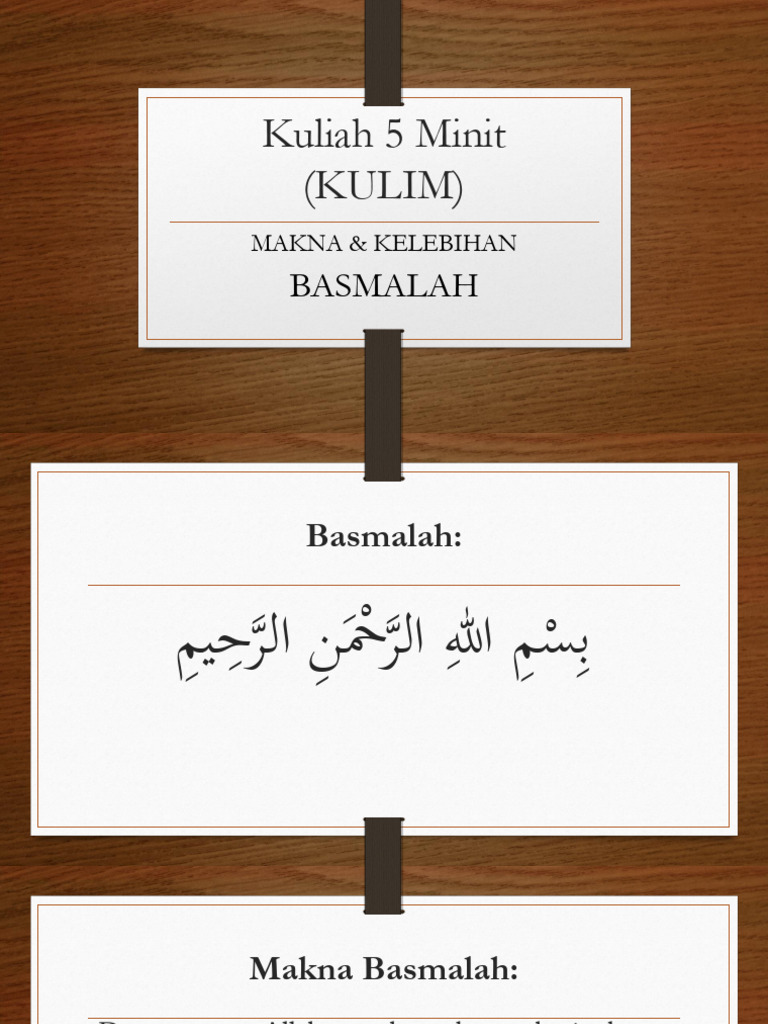 Kuliah 5 Minit
(KULIM)
MAKNA & KELEBIHAN
BASMALAH
Basmalah:
بِسْمِ اللهِ الرَّحْمَنِ الرَّحِيمِ
Makna Basmalah: